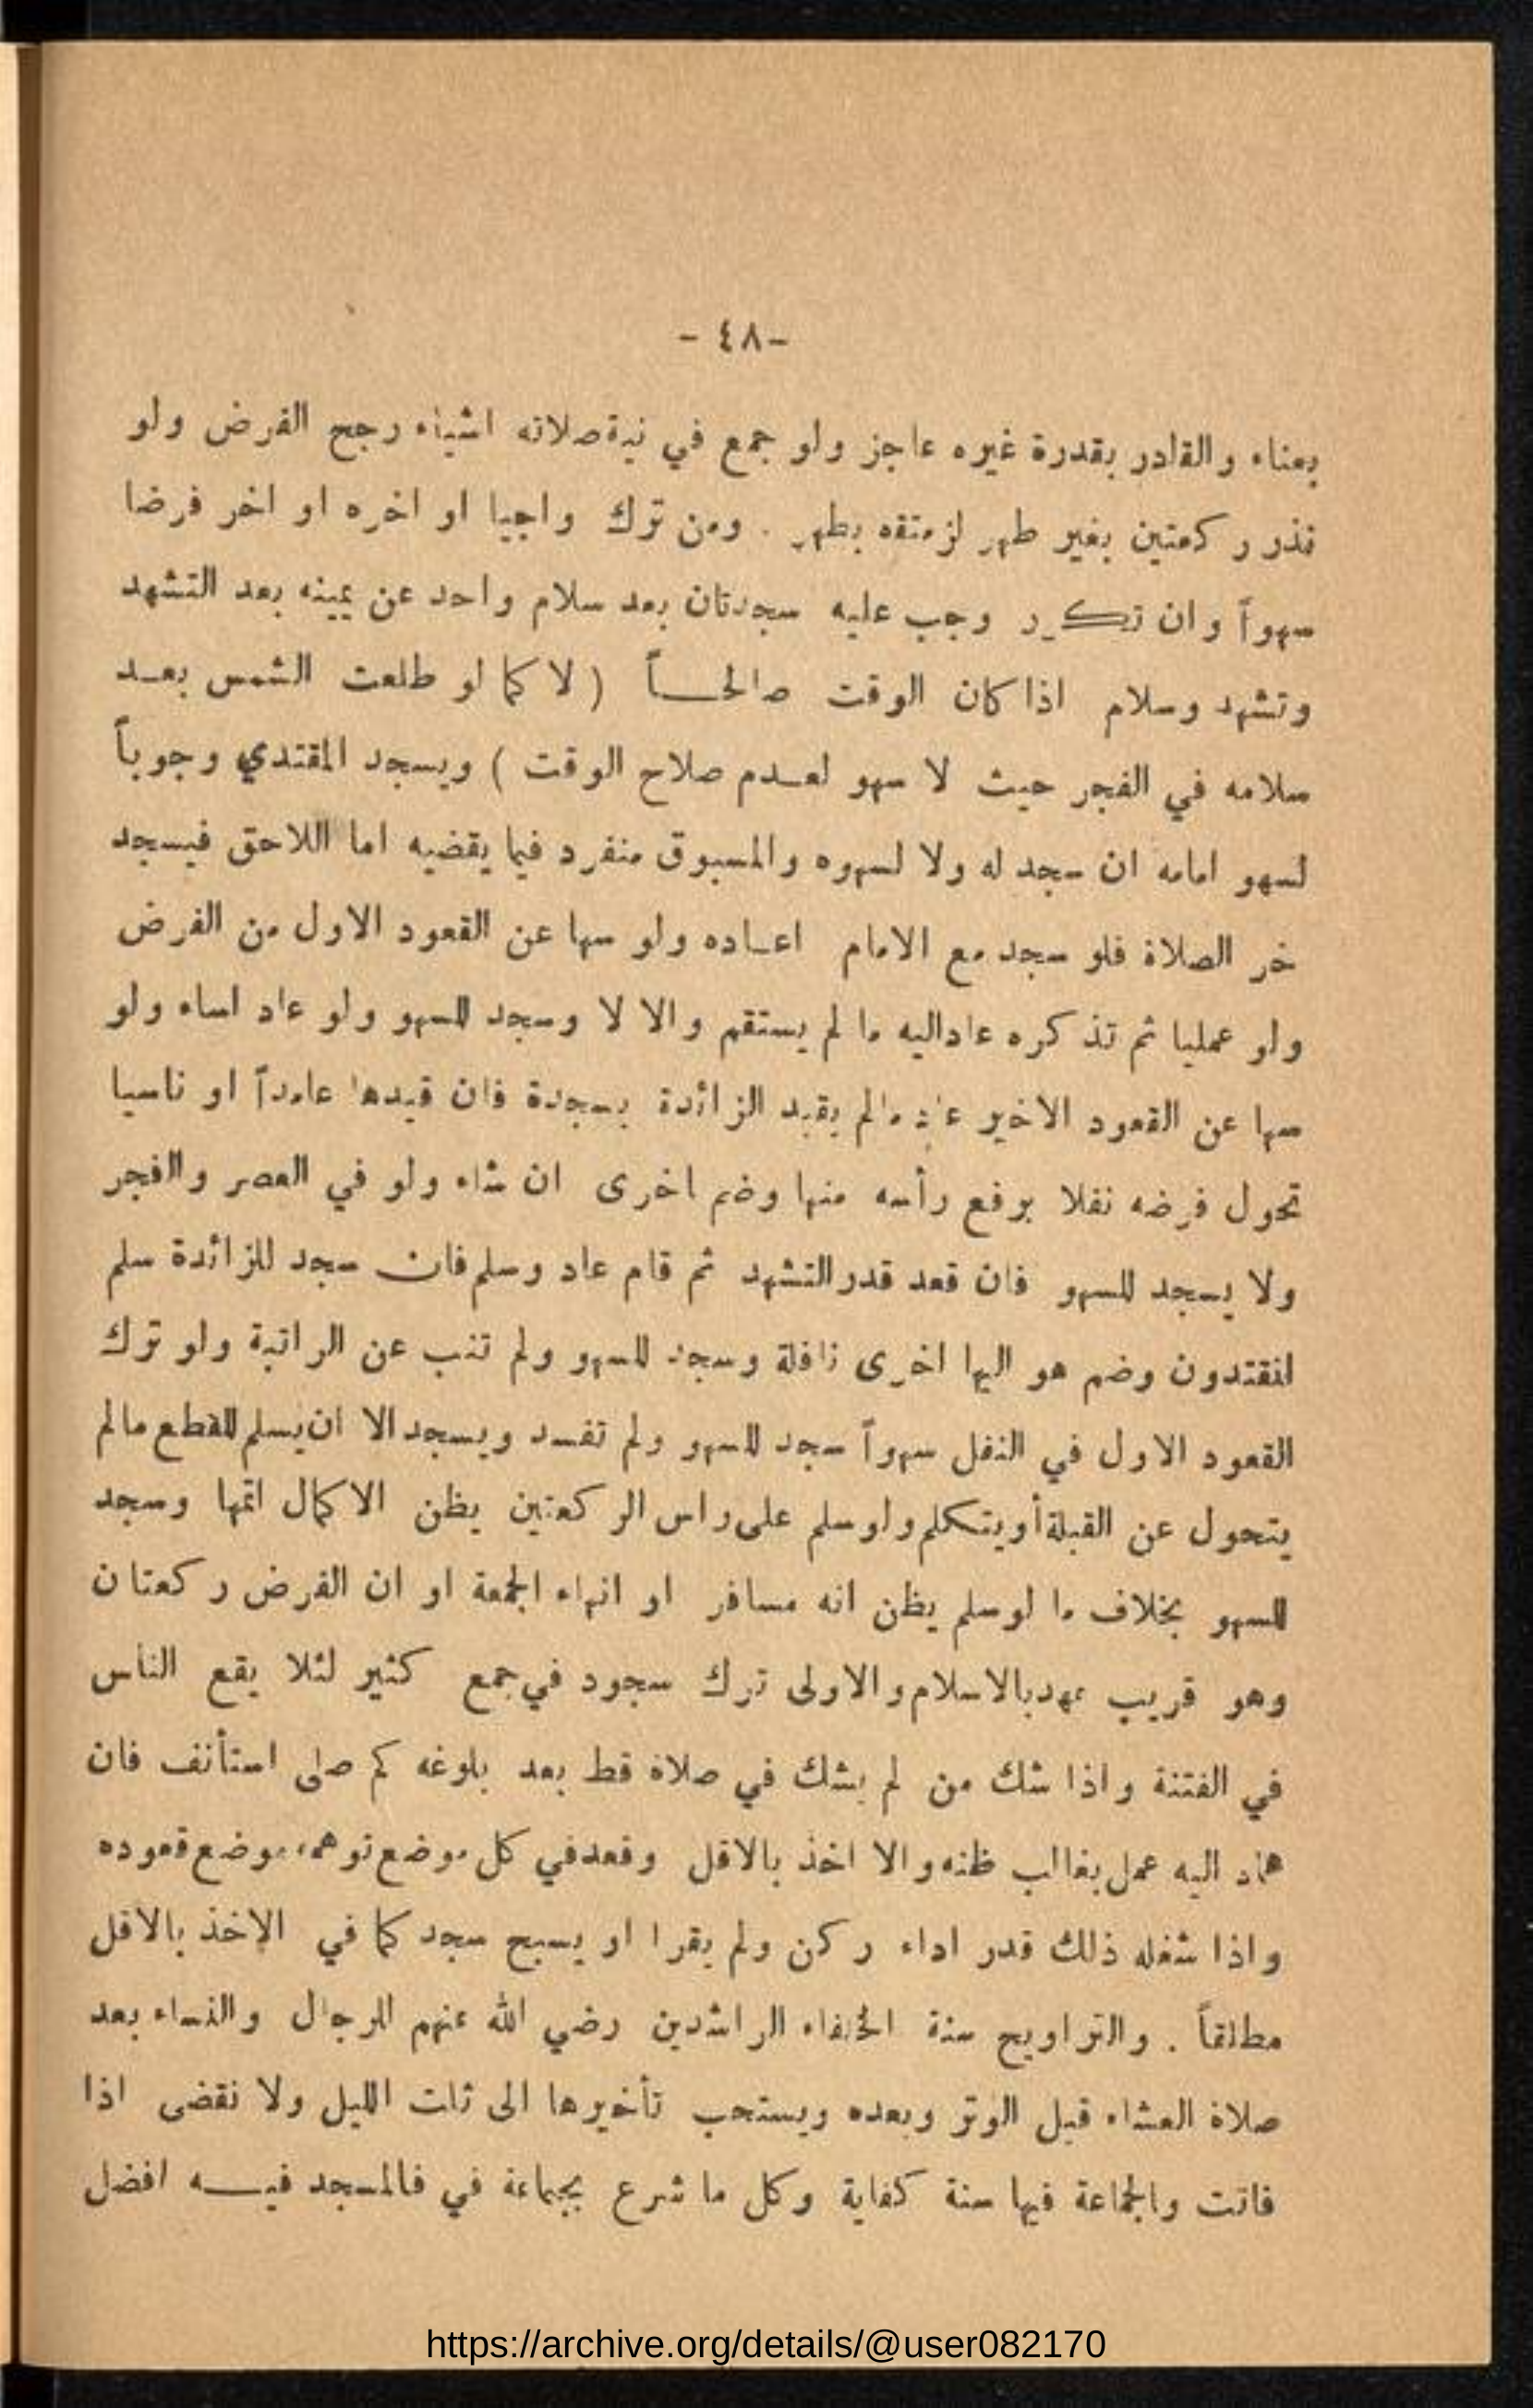 - ٤٨ -
بعناء والقادر بقدرة غيره عاجز ولو جمع في نية صلاته اشياء رجح الفرض ولو
نذر ركعتين بغير طهر لزمتفه بطهر . ومن ترك واجبا او اخره او اخر فرضا
سهواً وان تكرر وجب عليه سجدتان بعد سلام واحد عن يمينه بعد التشهد
وتشهد وسلام اذا كان الوقت صالحاً ( لا كما لو طلعت الشمس بعد
سلامه في الفجر حيث لا سهو لعدم صلاح الوقت ) ويسجد المقتدي وجوباً
لسهو امامه ان سجد له ولا لسهوه والمسبوق منفرد فيما يقضيه اما اللاحق فيسجد
خر الصلاة فلو سجد مع الامام اعاده ولو سها عن القعود الاول من الفرض
ولو عمليا ثم تذكره عاد اليه ما لم يستقم والا لا وسجد للسهو ولو عاد اساء ولو
سها عن القعود الاخير عاد مالم يقيد الزائدة بسجدة فان قيدها عامداً او ناسيا
تحول فرضه نفلا برفع رأسه منها وضم اخرى ان شاء ولو في العصر والفجر
ولا يسجد للسهو فان قعد قدر التشهد ثم قام عاد وسلم فان سجد للزائدة سلم
المقتدون وضم هو اليها اخرى نافلة وسجد للسهو ولم تنب عن الراتبة ولو ترك
القعود الاول في النفل سهواً سجد للسهو ولم تفسد ويسجد الا ان يسلم للقطع مالم
يتحول عن القبلة أو يتكلم ولو سلم على راس الركعتين يظن الاكمال اتمها وسجد
للسهو بخلاف ما لو سلم يظن انه مسافر او انهاء الجمعة او ان الفرض ركعتان
وهو قريب عهد بالاسلام والاولى ترك سجود في جمع كثير لئلا يقع الناس
في الفتنة واذا شك من لم يشك في صلاة قط بعد بلوغه كم صلى استأنف فان
عاد اليه عمل بغالب ظنه والا اخذ بالاقل وقعد في كل موضع توهمه موضع قعوده
واذا شغله ذلك قدر اداء ركن ولم يقرا او يسبح سجد كما في الاخذ بالاقل
مطلقاً . والتراويح سنة الخلفاء الراشدين رضي الله عنهم للرجال والنساء بعد
صلاة العشاء قبل الوتر وبعده ويستحب تأخيرها الى ثلت الليل ولا نقضى اذا
فاتت والجماعة فيها سنة كفاية وكل ما شرع بجماعة في فالمسجد فيه افضل
https://archive.org/details/@user082170